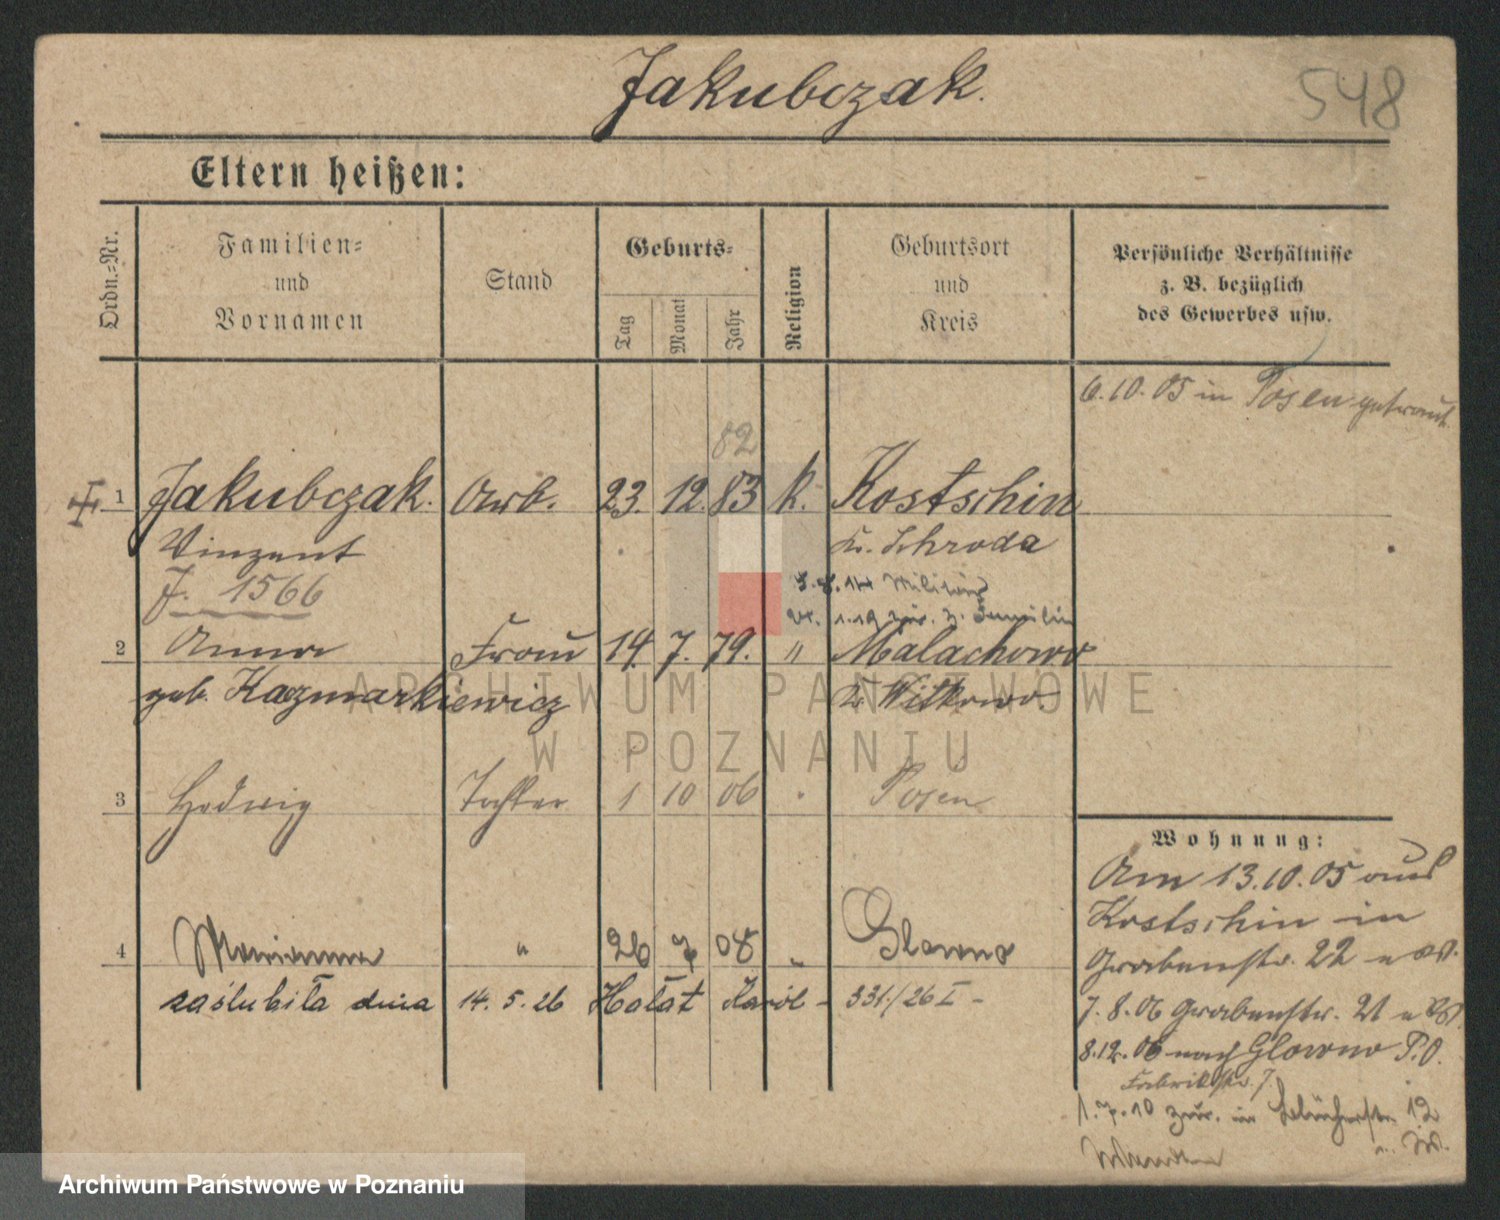 Jakubczak.
548
Eltern heißen:
Ordn.-Nr.
Familien-
und
Vornamen
Stand
Geburts-
Tag
Monat
Jahr
Religion
Geburtsort
und
Kreis
Persönliche Verhältnisse
z. B. bezüglich
des Gewerbes usw.
6.10.05 in Posen getraut.
82
1 Jakubczak. Arb. 23. 12. 83 k. Kostschin
Vinzent Kr. Schroda
J. 1566
Militär
2 Anna Frau 14. 7. 79. " Malachowo
geb. Kazmarkiewicz Kr. Witkowo.
3 Hedwig Tochter 1 10 06 Posen
Wohnung:
Am 13.10.05 aus
Kostschin in
Grabenstr. 22
4 Marianna " 26 7 08 " Glowno
zaślubiła dnia 14. 5. 26 Hałat Karól - 331./26 I -
7. 8. 06 Grabenstr. 21
8.12. 06 nach Glowno P.O.
Fabrikstr. 7.
1. 7. 10 zur. in 12
ARCHIWUM PAŃSTWOWE
W POZNANIU
Archiwum Państwowe w Poznaniu